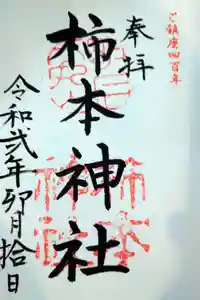 ご鎮座四百年
奉拝
柿本神社
令和弐年卯月拾日